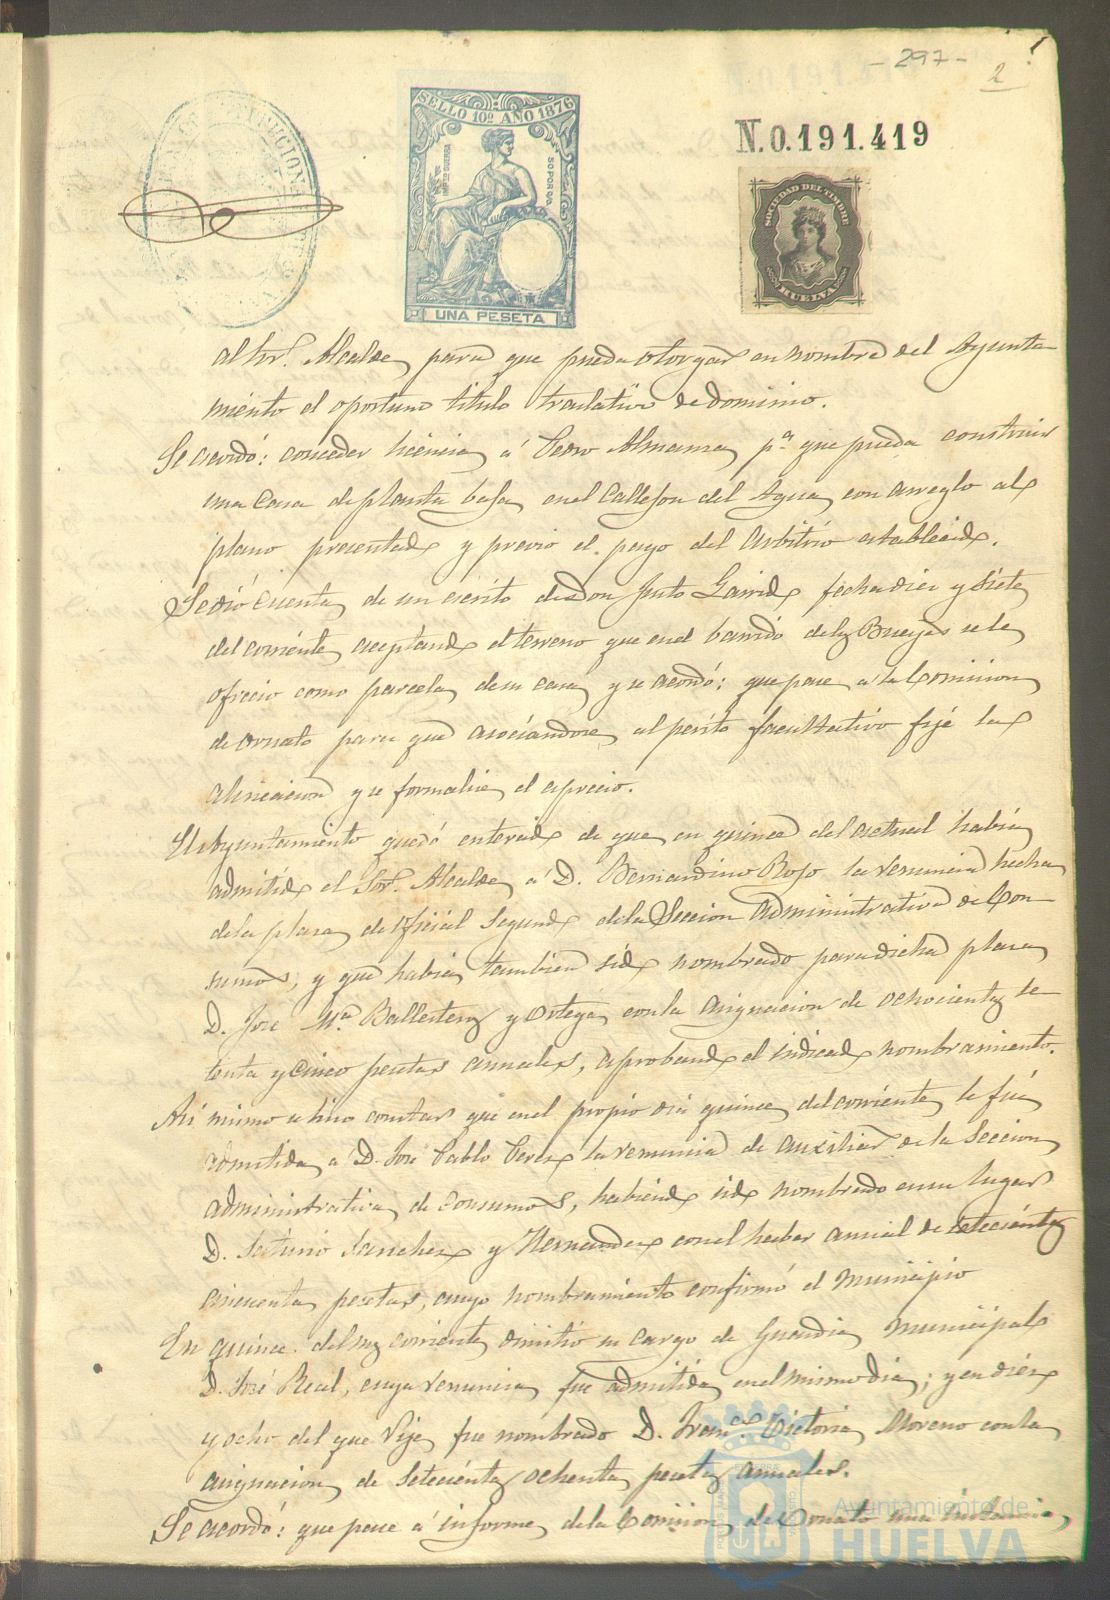 - 297 -
2
SELLO 10º AÑO 1876
UNA PESETA
N.0.191.419
SOCIEDAD DEL TIMBRE
HUELVA
al Sor. Alcalde para que pueda otorgar en nombre del Ayunta
miento el oportuno titulo traslativo de dominio.
Se acordó: conceder licencia á Pedro Almansa pª que pueda construir
una Casa de planta baja en el Callejon del Agua con arreglo al
plano presentado y previo el pago del Arbitrio establecido.
Se dió cuenta de un escrito de Don Justo Garrido fecha diez y siete
del corriente aceptando el terreno que en el barrido de los Bueyes se le
ofreció como parcela de su casa y se acordó: que pase a la Comision
de Ornato para que asociandose al perito facultativo fije la
alineacion y se formalice el aprecio.
El Ayuntamiento quedó enterado de que en quince del actual habia
admitido el Sor. Alcalde a D. Bernardino Rojo la renuncia hecha
de la plaza de Oficial Segundo de la Seccion Administrativa de Con
sumos, y que habia tambien sido nombrado para dicha plaza
D. José Mª Ballesteros y Ortega con la asignacion de ochocientas se
tenta y cinco pesetas annales, aprobando el indicado nombramiento.
Asi mismo se hizo constar que en el propio dia quince del corriente le fué
admitida a D. José Pablo Perez la renuncia de auxiliar de la Seccion
administrativa de Consumos, habiendo sido nombrado en su lugar
D. Saturio Sanchez y Hernandez con el haber anual de setecientas
cincuenta pesetas, cuyo nombramiento confirmó el Municipio
En quince del mes corriente dimitió su cargo de Guardia Municipal
D. José Real, cuya renuncia fue admitida en el mismo dia; y en diez
y ocho del que rije fue nombrado D. Franco. Victoria Moreno con la
asignacion de setecientas ochenta pesetas annales.
Se acordó: que pase a informe de la Comision de Ornato una instancia
Ayuntamiento de
HUELVA